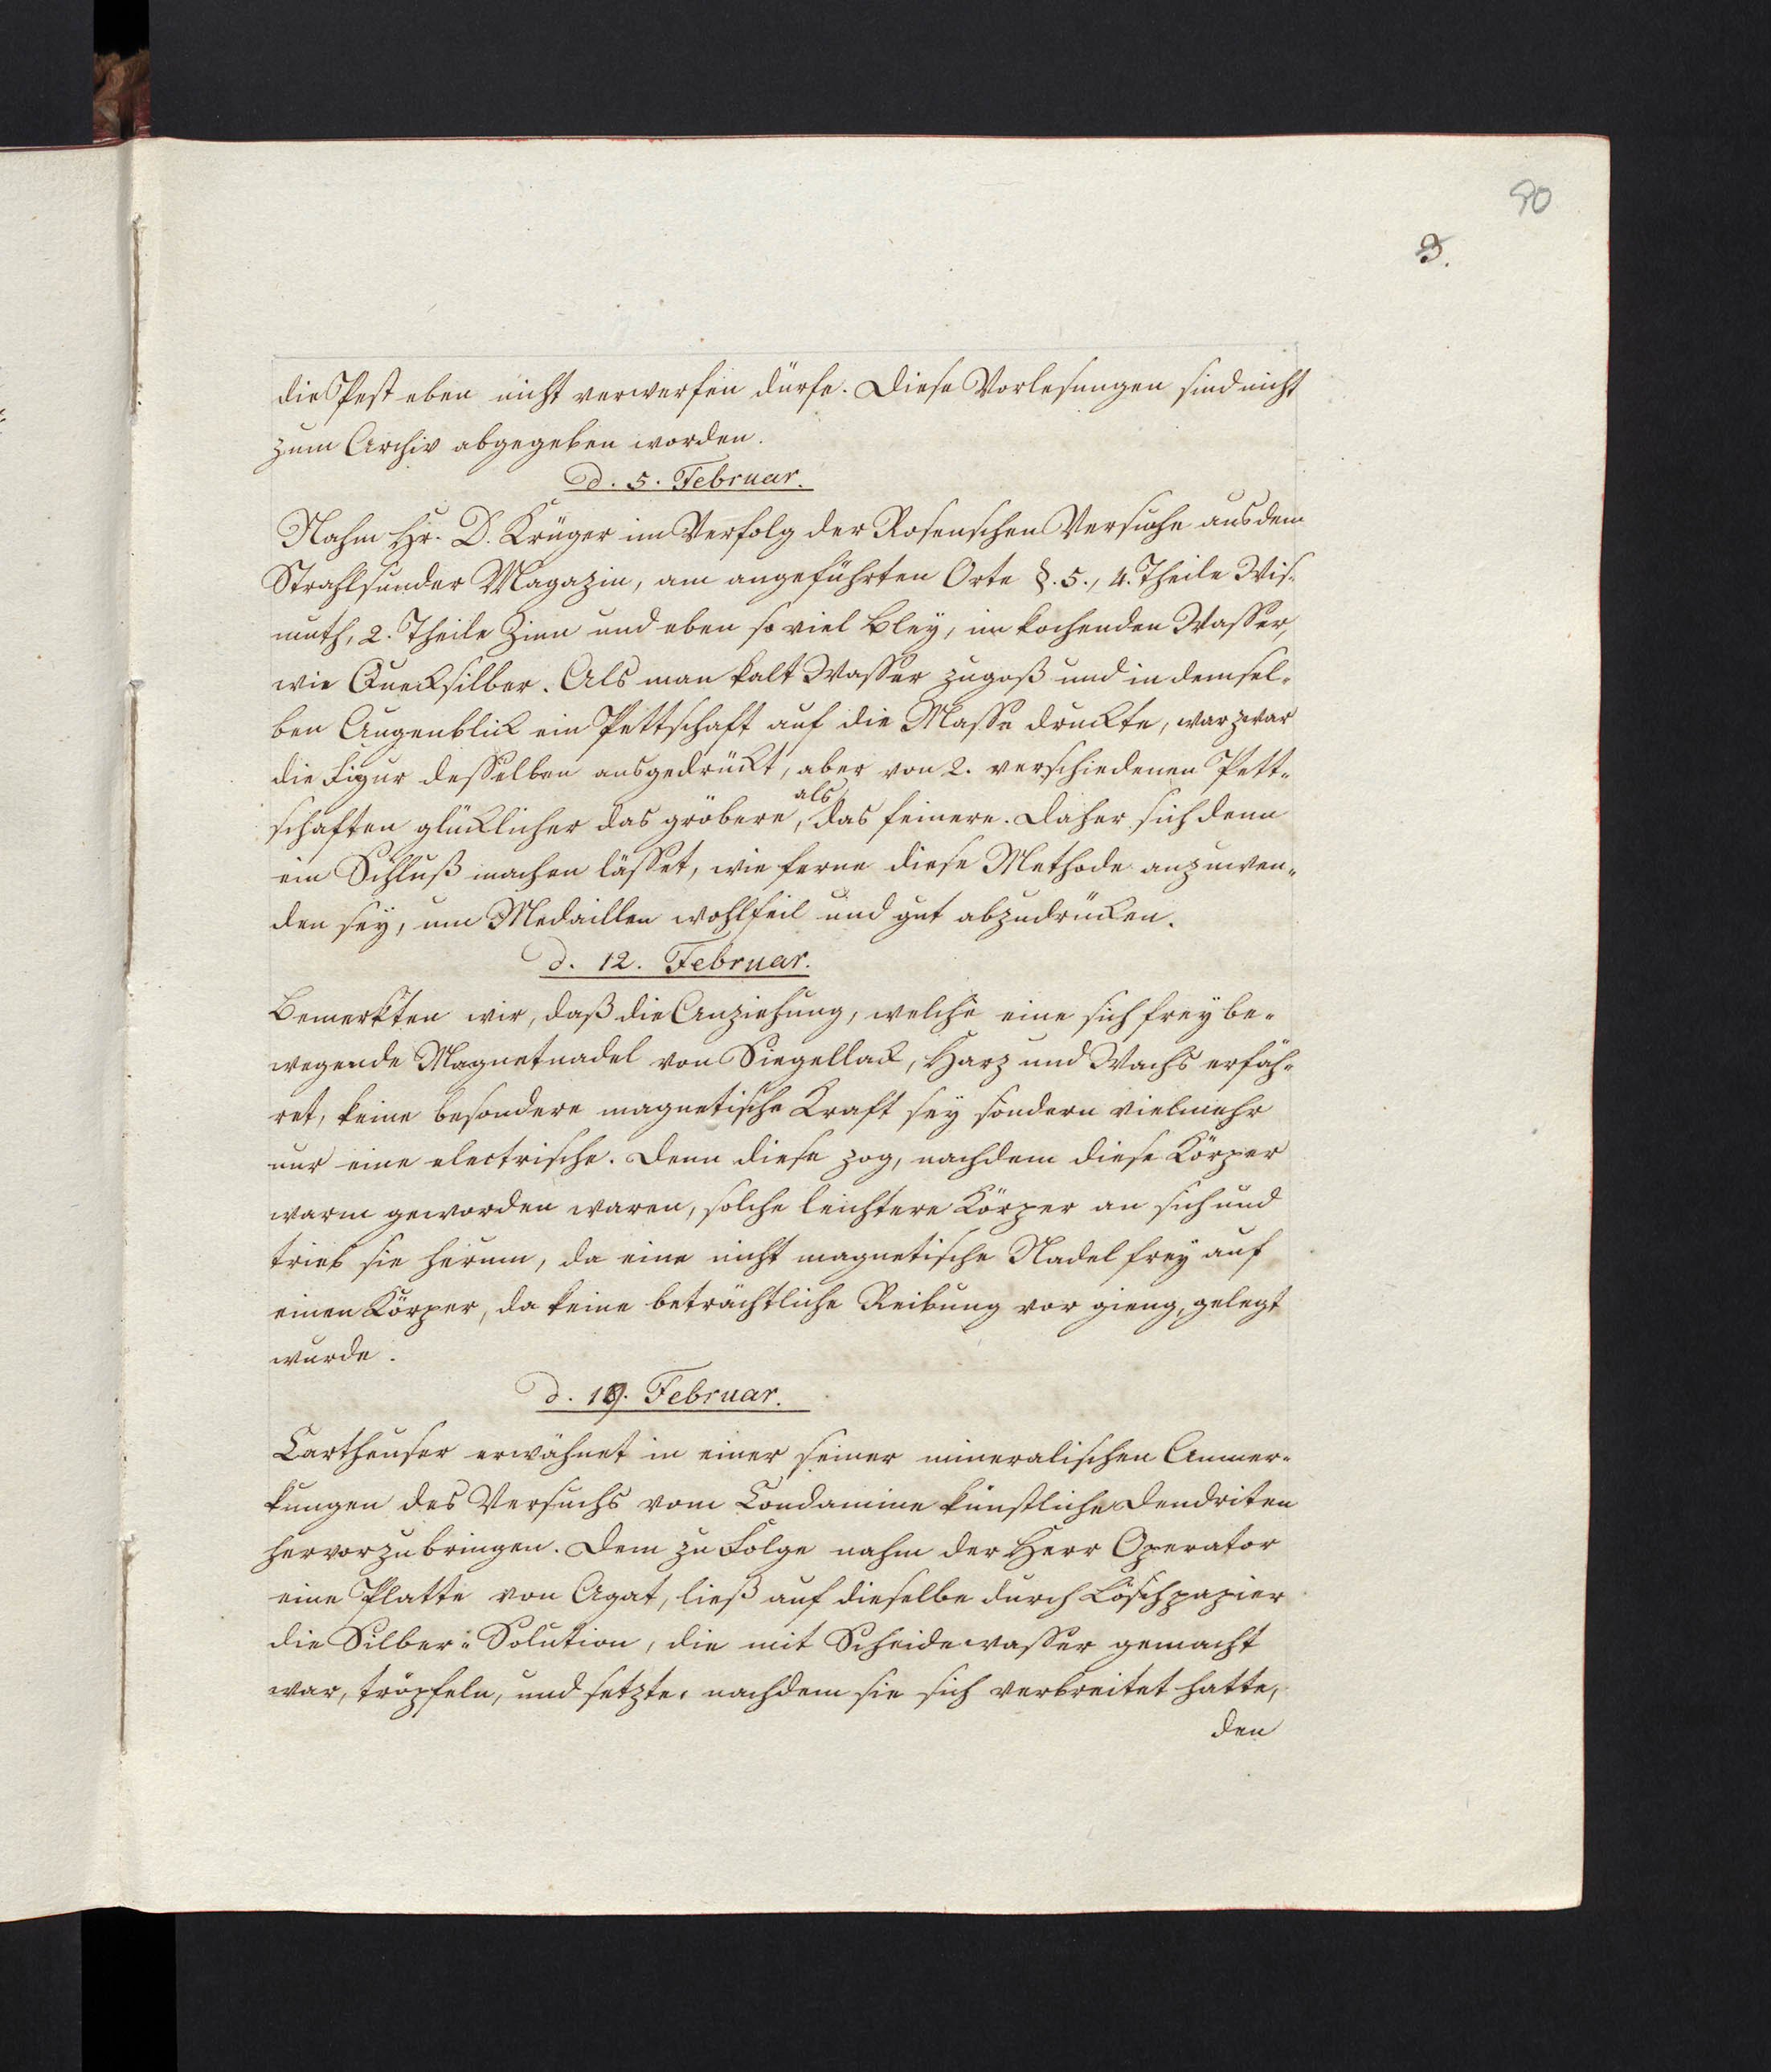 90
9.
die Pest eben nicht verwerfen dürfe. Diese Vorlesungen sind nicht
zum Archiv abgegeben worden.
d. 5. Februar.
Nahm Hr. D. Krüger im Verfolg der Rosenschen Versuche aus dem
Strahlsunder Magazin, am angeführten Orte §. 5., 4. Theile Wis-
muth, 2. Theile Zinn und eben so viel Bley, im kochenden Wasser,
wie Quecksilber. Als man kalt Wasser zugoß und in demsel-
ben Augenblick ein Pettschaft auf die Masse druckte, war zwar
die Figur desselben ausgedrückt, aber von 2. verschiedenen Pett-
schaften glücklicher das gröbere, als das feinere. Daher sich denn
ein Schluß machen lässet, wie ferne diese Methode anzuwen-
den sey, um Medaillen wohlfeil und gut abzudrücken.
d. 12. Februar.
Bemerkten wir, daß die Anziehung, welche eine sich frey be-
wegende Magnetnadel von Siegellack, Harz und Wachs erfäh-
ret, keine besondere magnetische Kraft sey sondern vielmehr
nur eine electrische. Denn diese zog, nachdem diese Körper
warm geworden waren, solche leichtere Körper an sich und
trieb sie herum, da eine nicht magnetische Nadel frey auf
einen Körper, da keine beträchtliche Reibung vor gieng, gelegt
wurde.
d. 19. Februar.
Cartheuser erwähnet in einer seiner mineralischen Anmer-
kungen des Versuchs vom Condamine künstliche Dendriten
hervorzubringen. Dem zu Folge nahm der Herr Operator
eine Platte von Agat, ließ auf dieselbe durch Löschpapier
die Silber-Solution, die mit Scheidewasser gemacht
war, tröpfeln, und setzte, nachdem sie sich verbreitet hatte,
den